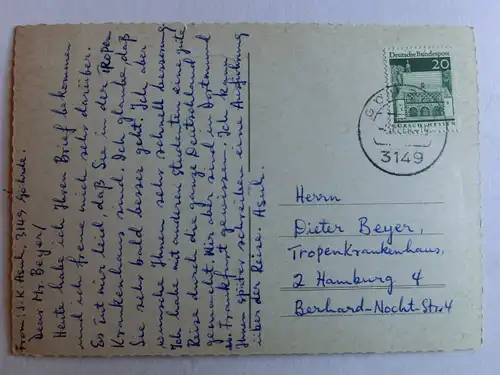 From: J.K. Asuk, 3149 Göhrde.
Dear Mr. Beyer!
Heute habe ich Ihren Brief bekommen
und ich freue mich sehr darüber.
Es tut mir leid, daß Sie in der Tropen
Krankenhaus sind. Ich glaube daß
Sie sehr bald besser geht. Ich aber
wünsche Ihnen sehr schnell besserung
Ich habe mit anderen studenten eine gute
Reise durch die ganze Deutschland
gemacht. Wir sind in Dortmund
Frankfurt gewesen. Ich kann
Ihnen später schreiben eine Ausführung
über der Reise. Asuk.
Deutsche Bundespost
20
3149
Herrn
Dieter Beyer,
Tropenkrankenhaus,
2 Hamburg 4
Berhard-Nocht-Str. 4